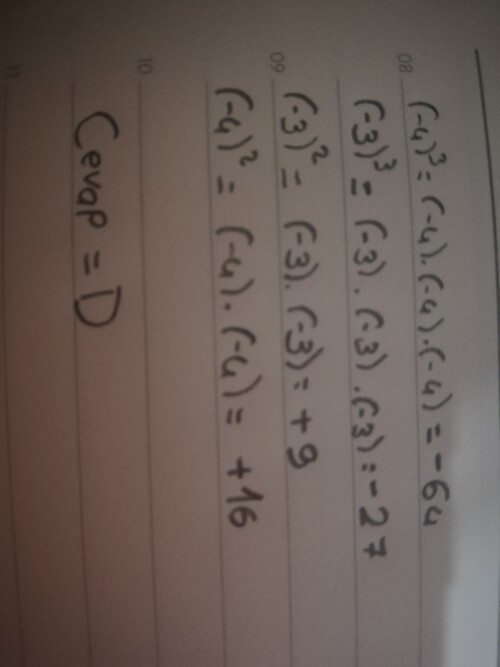 08
(-4)³ = (-4).(-4).(-4) = -64
(-3)³ = (-3).(-3).(-3) = -27
09
(-3)² = (-3).(-3) = +9
(-4)² = (-4).(-4) = +16
10
Cevap = D
11